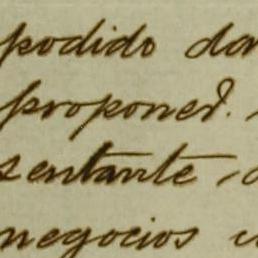 podido
proponer.
sentante,
negocios